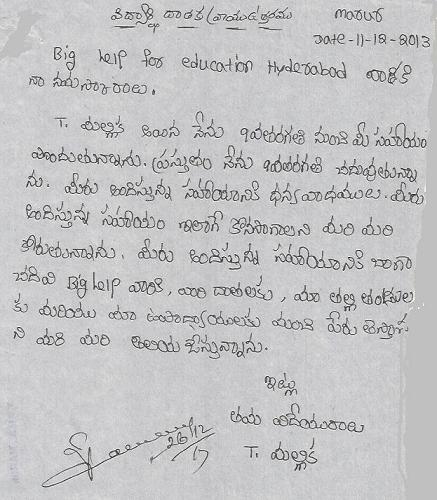 విద్యార్థి దాతకు వ్రాయు ఉత్తరము
Marur
Date-11-12-2013
Big help for education Hyderabad వారికి
నా నమస్కారాలు.
T. మల్లిక అయిన నేను తరగతి నుంచి మీ సహాయం
పొందుతున్నాను. ప్రస్తుతం నేను తరగతి చదువుతున్నా
ను. మీరు అందిస్తున్న సహాయానికి ధన్యవాదములు. మీరు
అందిస్తున్న సహాయం ఇలాగే కొనసాగాలని మరి మరి
కోరుతున్నాను. మీరు అందిస్తున్న సహాయానికి బాగా
చదివి Big help వారికి, వారి దాతలకు, మా తల్లి తండ్రుల
కు మరియు మా ఉపాధ్యాయులకు మంచి పేరు తెస్తాన
ని మరి మరి తెలియ చేస్తున్నాను.
ఇట్లు
తమ విదేయురాలు
T. మల్లిక
26/12